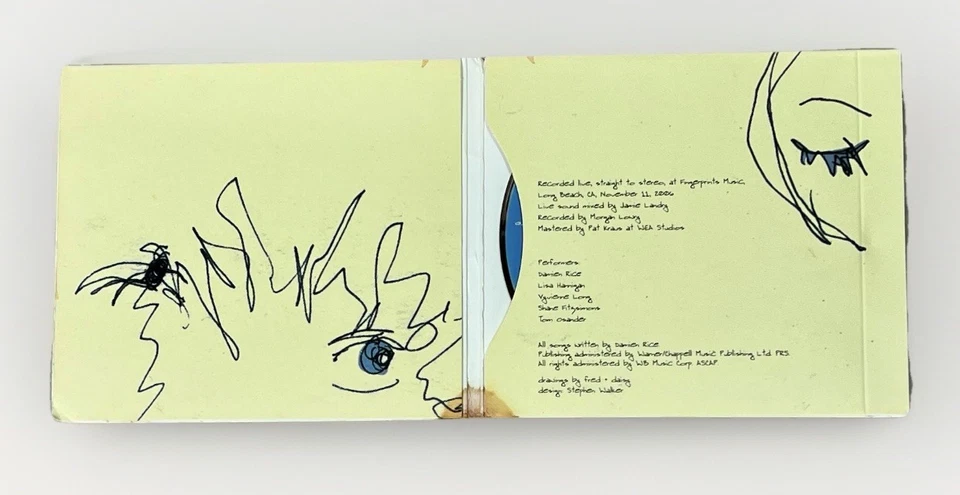 Recorded live, straight to stereo, at Fingerprints Music,
Long Beach, CA, November 11, 2006
Live sound mixed by Jamie Landry
Recorded by Morgan Lowry
Mastered by Pat Kraus at WEA Studios
Performers:
Damien Rice
Lisa Hannigan
Vyvienne Long
Shane Fitzsimons
Tom Osander
All songs written by Damien Rice
Publishing administered by Warner/Chappell Music Publishing Ltd PRS.
All rights administered by WB Music Corp. ASCAP
drawings by fred + daisy
design: Stephen Walker